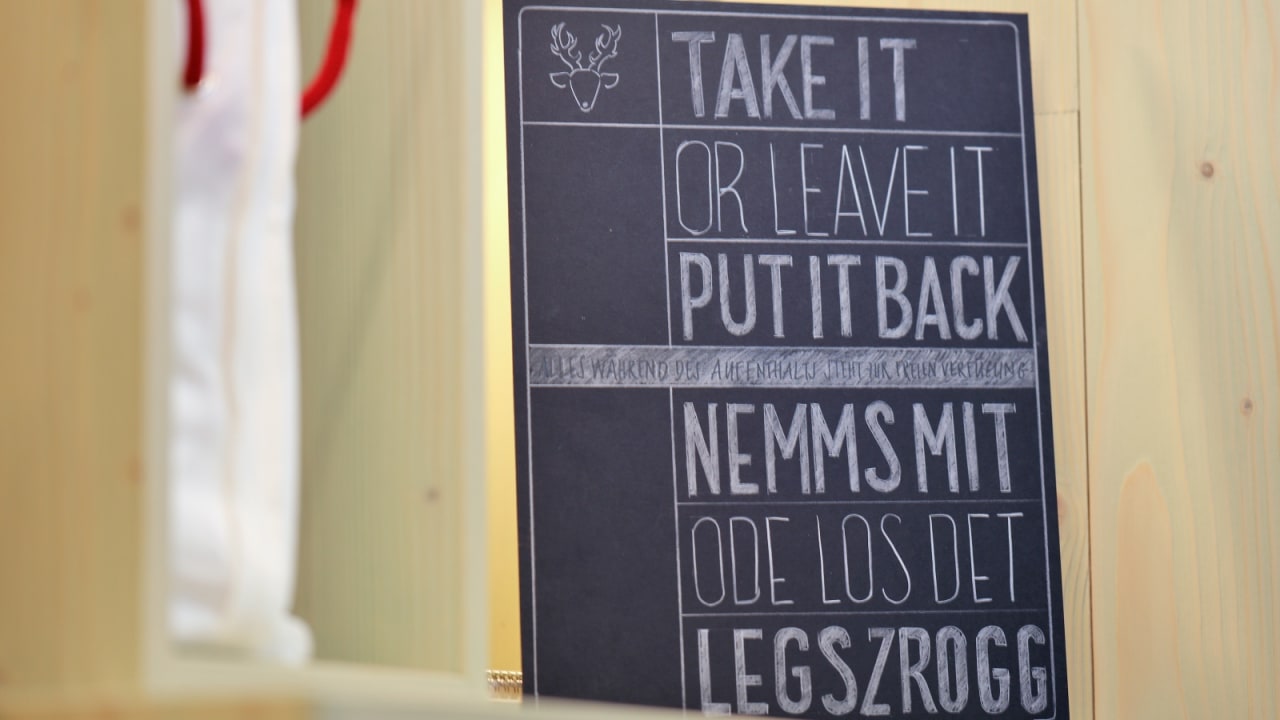 TAKE IT
OR LEAVE IT
PUT IT BACK
ALLES WÄHREND DES AUFENTHALTS STEHT ZUR FREIEN VERFÜGUNG
NEMMS MIT
ODE LOS DET
LEGS ZROGG